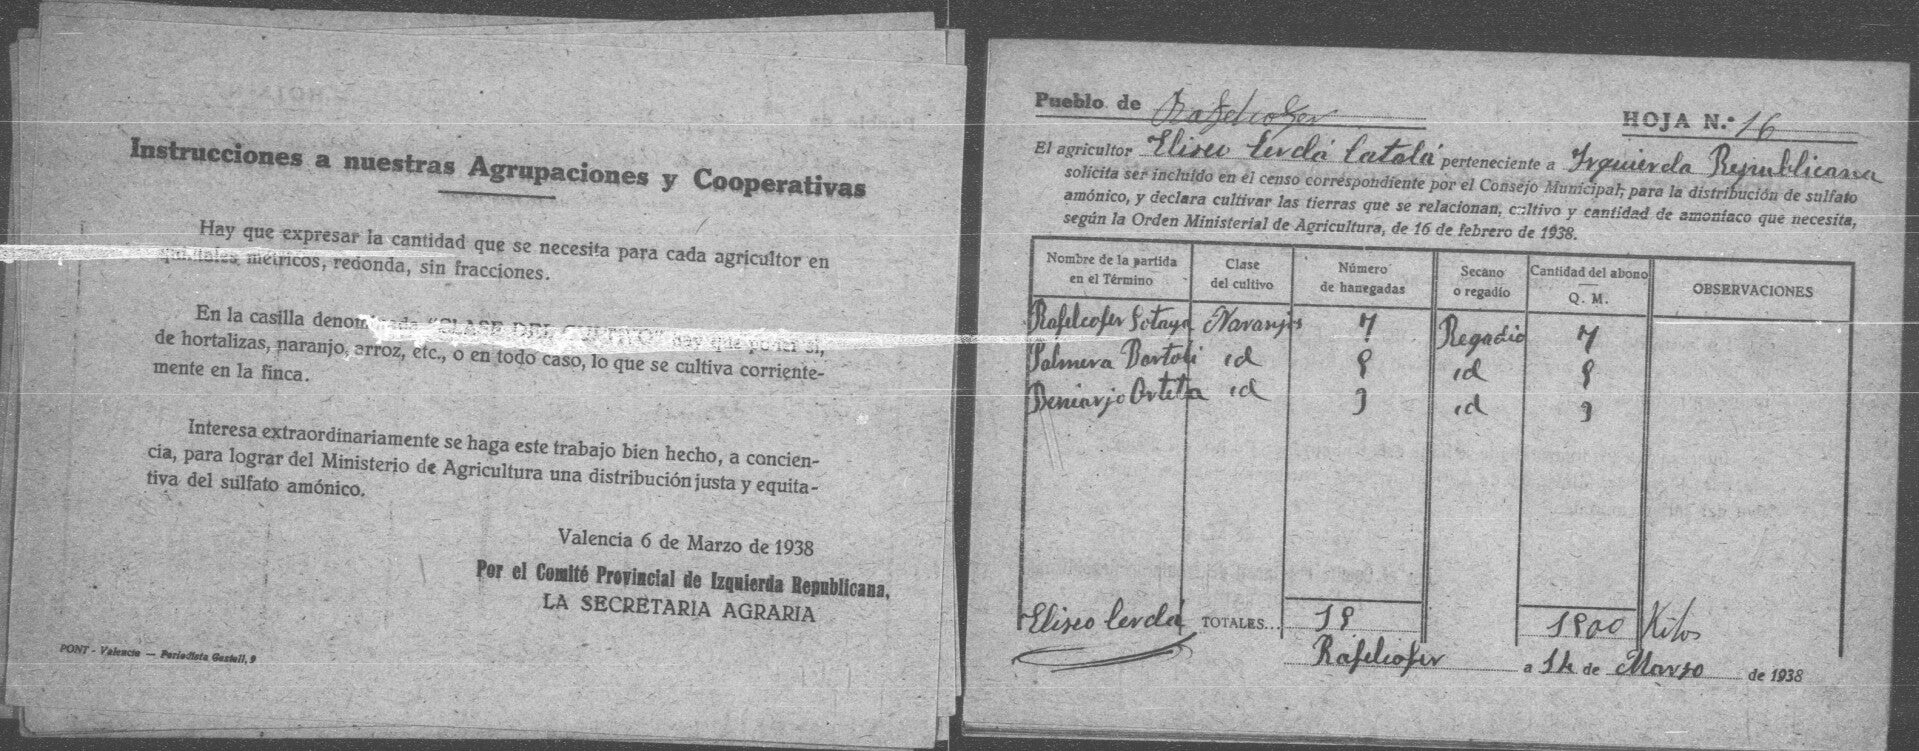 Instrucciones a nuestras Agrupaciones y Cooperativas
Hay que expresar la cantidad que se necesita para cada agricultor en
quintales métricos, redonda, sin fracciones.
En la casilla denominada "CLASE DEL CULTIVO" hay que poner si,
de hortalizas, naranjo, arroz, etc., o en todo caso, lo que se cultiva corriente-
mente en la finca.
Interesa extraordinariamente se haga este trabajo bien hecho, a concien-
cia, para lograr del Ministerio de Agricultura una distribución justa y equita-
tiva del sulfato amónico.
Valencia 6 de Marzo de 1938
Por el Comité Provincial de Izquierda Republicana,
LA SECRETARIA AGRARIA
PONT - Valencia — Periodista Gastell, 9
Pueblo de Rafelcofer
HOJA N.º 16
El agricultor Eliseo Cerdá Catalá perteneciente a Izquierda Republicana
solicita ser incluído en el censo correspondiente por el Consejo Municipal, para la distribución de sulfato
amónico, y declara cultivar las tierras que se relacionan, cultivo y cantidad de amoníaco que necesita,
según la Orden Ministerial de Agricultura, de 16 de febrero de 1938.
Nombre de la partida en el Término | Clase del cultivo | Número de hanegadas | Secano o regadío | Cantidad del abono Q. M. | OBSERVACIONES
Rafelcofer Sotaya Naranjos 7 Regadio 7
Palmera Bartoli id 8 id 8
Beniarjo Orteta id 3 id 3
Eliseo Cerdá TOTALES... 18 1800 Kilos
Rafelcofer a 14 de Marzo de 1938